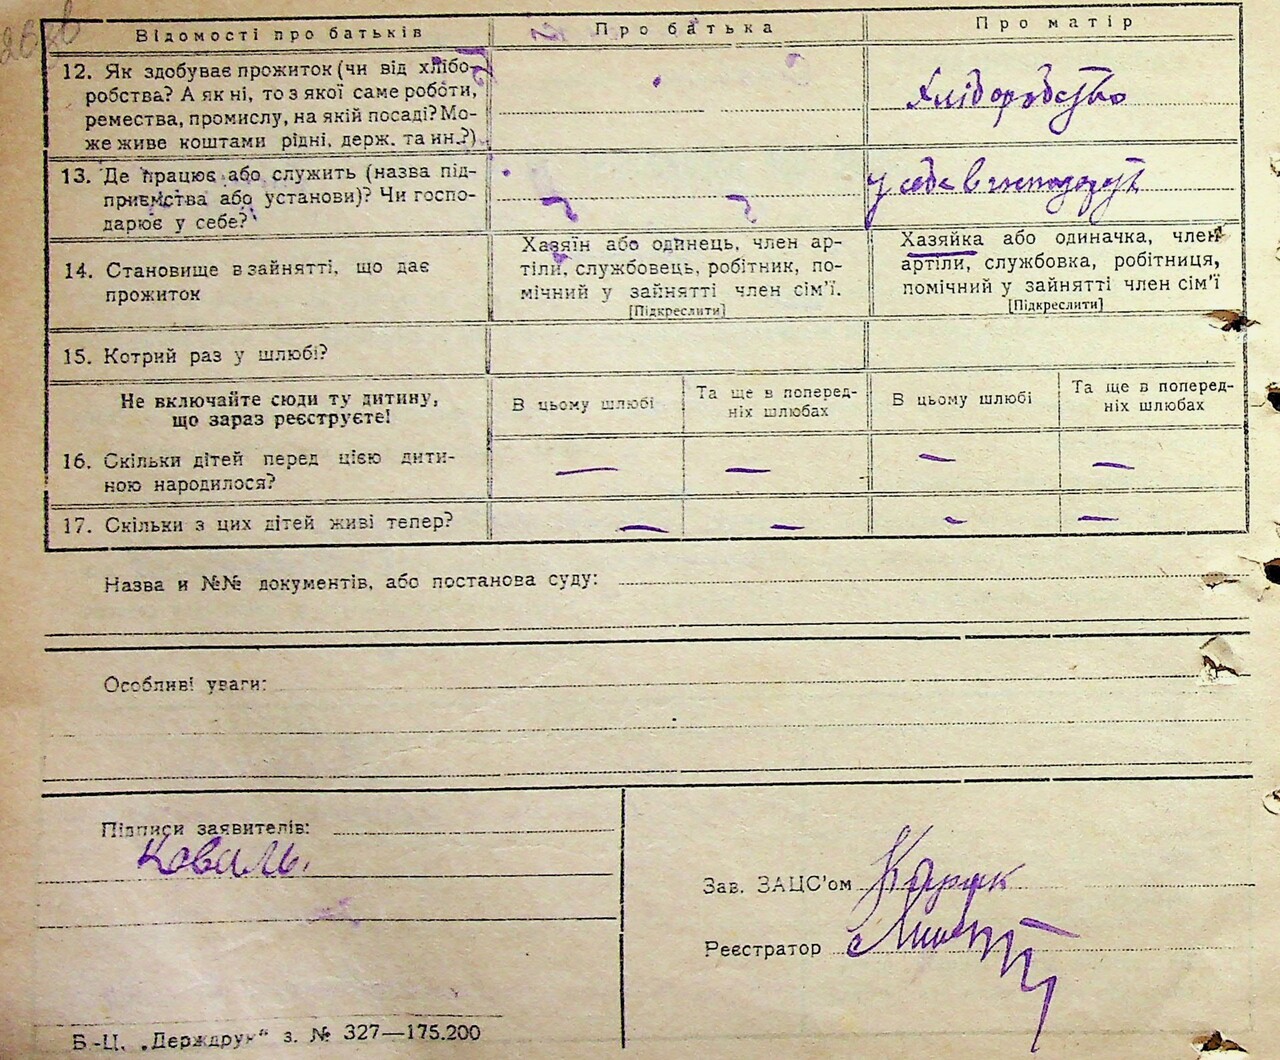 Відомості про батьків
Про батька
Про матір
12. Як здобуває прожиток (чи від хлібо-
робства? А як ні, то з якої саме роботи,
ремества, промислу, на якій посаді? Мо-
же живе коштами рідні, держ. та ин.?)
Хліборобство
13. Де працює або служить (назва під-
приємства або установи)? Чи госпо-
дарює у себе?
у себе в господарст
14. Становище в зайнятті, що дає
прожиток
Хазяїн або одинець, член ар-
тіли, службовець, робітник, по-
мічний у зайнятті член сім'ї.
[Підкреслити]
Хазяйка або одиначка, член
артіли, службовка, робітниця,
помічний у зайнятті член сім'ї
[Підкреслити]
15. Котрий раз у шлюбі?
Не включайте сюди ту дитину,
що зараз реєструєте!
В цьому шлюбі
Та ще в поперед-
ніх шлюбах
В цьому шлюбі
Та ще в поперед-
ніх шлюбах
16. Скільки дітей перед цією дити-
ною народилося?
— — — —
17. Скільки з цих дітей живі тепер?
— — — —
Назва и №№ документів, або постанова суду:
Особливі уваги:
Підписи заявителів:
Коваль.
Зав. ЗАЦС'ом
Реєстратор
Б.-Ц. „Держдрук" з. № 327—175.200